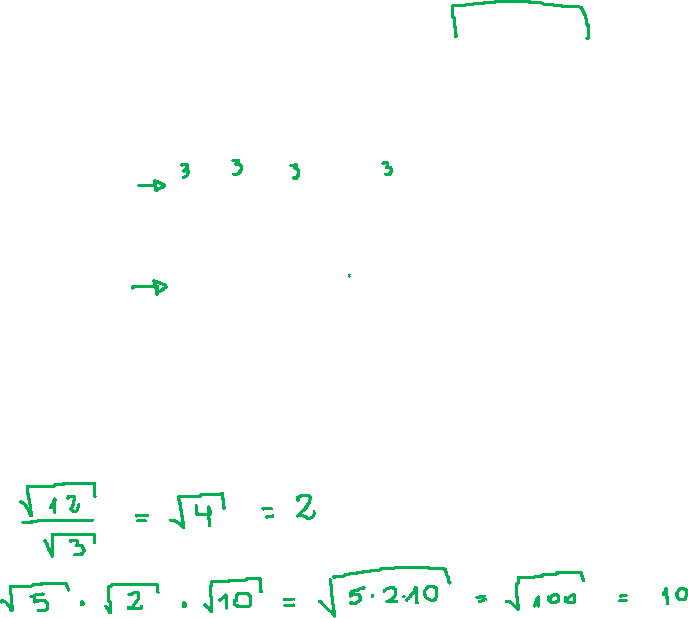 → 3 3 3 3
→
√12 / √3 = √4 = 2
√5 · √2 · √10 = √5·2·10 = √100 = 10